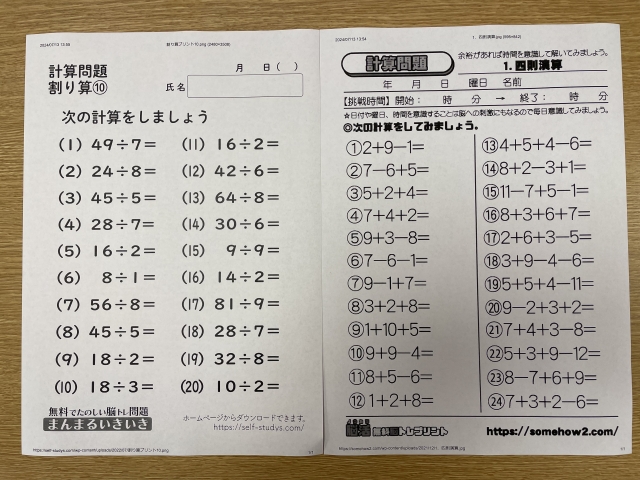 2024/07/13 13:53 割り算プリント10.png (2480×3508)
計算問題
割り算⑩
月 日( )
氏名
次の計算をしましょう
(1) 49÷7=
(2) 24÷8=
(3) 45÷5=
(4) 28÷7=
(5) 16÷2=
(6) 8÷1=
(7) 56÷8=
(8) 45÷5=
(9) 18÷2=
(10) 18÷3=
(11) 16÷2=
(12) 42÷6=
(13) 64÷8=
(14) 30÷6=
(15) 9÷9=
(16) 14÷2=
(17) 81÷9=
(18) 28÷7=
(19) 32÷8=
(20) 10÷2=
無料でたのしい脳トレ問題
まんまるいきいき
ホームページからダウンロードできます。
https://self-studys.com/
1/1
2024/07/13 13:54 1. 四則演算.png (595×842)
計算問題
余裕があれば時間を意識して解いてみましょう。
1. 四則演算
年 月 日 曜日 名前
【挑戦時間】 開始: 時 分 → 終了: 時 分
☆日付や曜日、時間を意識することは脳への刺激にもなるので毎日意識してみましょう。
◎次の計算をしてみましょう。
①2+9−1=
②7−6+5=
③5+2+4=
④7+4+2=
⑤9+3−8=
⑥7−6−1=
⑦9−1+7=
⑧3+2+8=
⑨1+10+5=
⑩9+9−4=
⑪8+5−6=
⑫1+2+8=
⑬4+5+4−6=
⑭8+2−3+1=
⑮11−7+5−1=
⑯8+3+6+7=
⑰2+6+3−5=
⑱3+9−4−6=
⑲5+5+4−11=
⑳9−2+3+2=
㉑7+4+3−8=
㉒5+3+9−12=
㉓8−7+6+9=
㉔7+3+2−6=
脳トレプリント
https://somehow2.com/
1/1